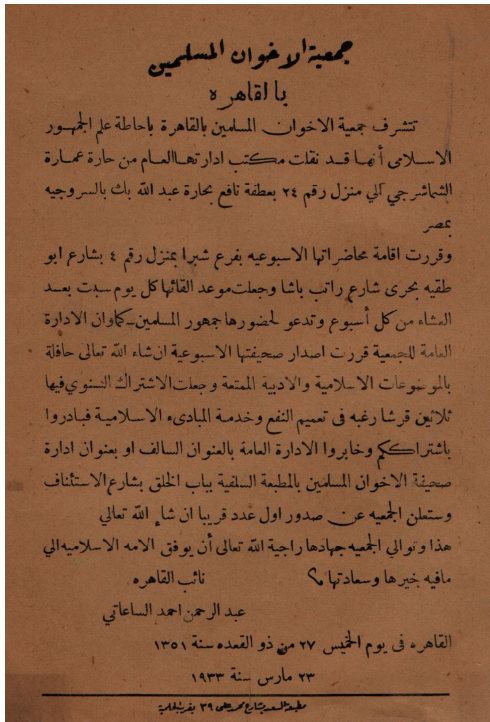 جمعية الاخوان المسلمين
بالقاهره
تتشرف جمعية الاخوان المسلمين بالقاهرة باحاطة علم الجمهور
الاسلامى أنها قد نقلت مكتب ادارتها العام من حارة عمارة
الشماشرجي الي منزل رقم ٢٤ بعطفة نافع بحارة عبد الله بك بالسروجيه
بمصر
وقررت اقامة محاضراتها الاسبوعيه بفرع شبرا بمنزل رقم ٤ بشارع ابو
طقيه بحرى شارع راتب باشا وجعلت موعد القائها كل يوم سبت بعد
العشاء من كل أسبوع وتدعو لحضورها جمهور المسلمين ـ كما وان الادارة
العامة للجمعية قررت اصدار صحيفتها الاسبوعية ان شاء الله تعالى حافلة
بالموضوعات الاسلامية والادبية الممتعة وجعلت الاشتراك السنوي فيها
ثلاثين قرشا رغبه فى تعميم النفع وخدمة المبادىء الاسلامية فبادروا
باشتراككم وخابروا الادارة العامة بالعنوان السالف او بعنوان ادارة
صحيفة الاخوان المسلمين بالمطبعة السلفية بباب الخلق بشارع الاستئناف
وستعلن الجمعيه عن صدور اول عدد قريبا ان شاء الله تعالي
هذا وتوالي الجمعيه جهادها راجية الله تعالى أن يوفق الامه الاسلاميه الي
مافيه خيرها وسعادتها نائب القاهره
عبد الرحمن احمد الساعاتي
القاهره فى يوم الخميس ٢٧ من ذو القعده سنة ١٣٥١
٢٣ مارس سنة ١٩٣٣
بشارع محمد على ٣٩